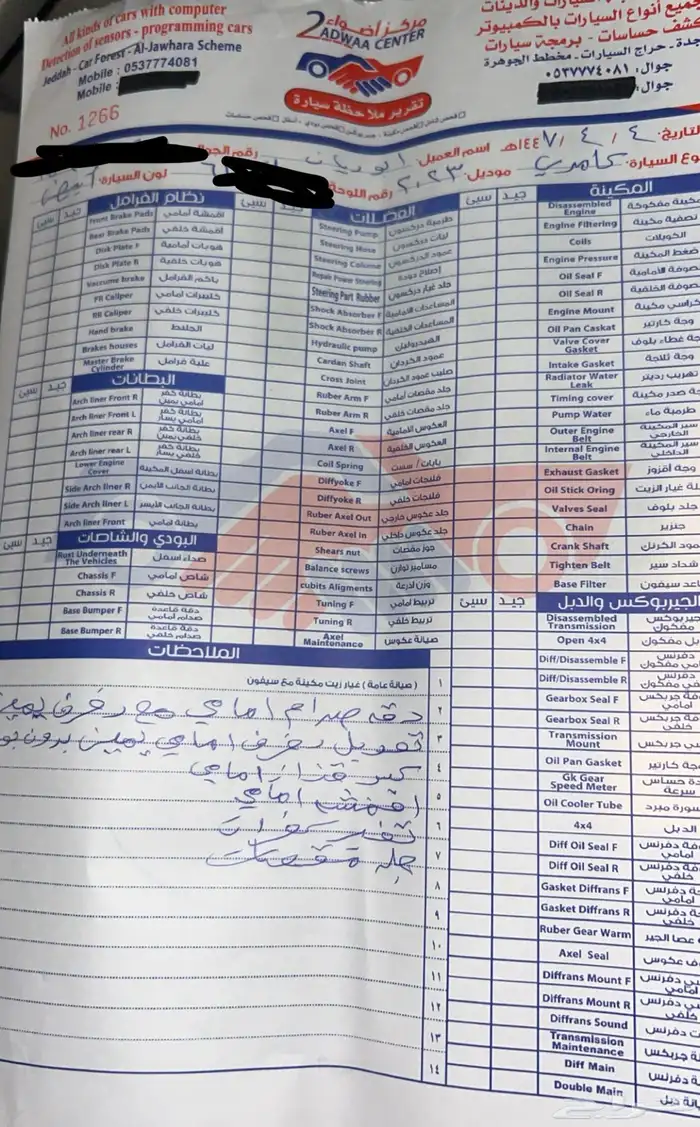 All kinds of cars with computer
Detection of sensors - programming cars
Jeddah - Car Forest - Al-Jawhara Scheme
Mobile : 0537774081
Mobile :
No. 1266
مركز أضواء 2
2 ADWAA CENTER
تقرير ملاحظة سيارة
جميع أنواع السيارات بالكمبيوتر
كشف حساسات - برمجة سيارات
جدة - حراج السيارات - مخطط الجوهرة
جوال: ٠٥٣٧٧٧٤٠٨١
جوال:
التاريخ: ٤ / ٤ / ١٤٤٧هـ اسم العميل: رقم الجوال
نوع السيارة كامري موديل ٢٠٢٣ رقم اللوحة لون السيارة أبيض
المكينة جيد سيئ
Disassembled Engine مكينة مفكوكة
Engine Filtering تصفية مكينة
Coils الكويلات
Engine Pressure ضغط المكينة
Oil Seal F صوفة الأمامية
Oil Seal R صوفة الخلفية
Engine Mount كراسي مكينة
Oil Pan Casket وجة كارتير
Valve Cover Gasket وجة غطاء بلوف
Intake Gasket وجة ثلاجة
Radiator Water Leak تهريب رديتر
Timing cover وجة صدر مكينة
Pump Water طرمبة ماء
Outer Engine Belt سير المكينة الخارجي
Internal Engine Belt سير المكينة الداخلي
Exhaust Gasket وجة أقزوز
Oil Stick Oring
Valves Seal جلد بلوف
Chain جنزير
Crank Shaft عمود الكرنك
Tighten Belt شداد سير
Base Filter قاعد سيفون
الجيربوكس والدبل جيد سيئ
Disassembled Transmission جيربوكس مفكوك
Open 4x4 دبل مفكوك
Diff/Disassemble F
Diff/Disassemble R
Gearbox Seal F
Gearbox Seal R
Transmission Mount
Oil Pan Gasket
Gk Gear Speed Meter
Oil Cooler Tube
4x4 الدبل
Diff Oil Seal F
Diff Oil Seal R
Gasket Diffrans F
Gasket Diffrans R
Ruber Gear Warm
Axel Seal
Diffrans Mount F
Diffrans Mount R
Diffrans Sound
Transmission Maintenance
Diff Main
Double Main
العضلات جيد سيئ
Steering Pump طرمبة دركسون
Steering Hose ليات دركسون
Steering Column عمود الدركسون
Repair Power Steering إصلاح دودة
Steering Part Rubber جلد غبار دركسون
Shock Absorber F المساعدات الأمامية
Shock Absorber R المساعدات الخلفية
Hydraulic pump الهيدروليك
Cardan Shaft عمود الكردان
Cross Joint صليب عمود الكردان
Ruber Arm F جلد مقصات أمامي
Ruber Arm R جلد مقصات خلفي
Axel F العكوس الأمامية
Axel R العكوس الخلفية
Coil Spring يايات / سست
Diffyoke F فلنجات أمامي
Diffyoke R فلنجات خلفي
Ruber Axel Out جلد عكوس خارجي
Ruber Axel In جلد عكوس داخلي
Shears nut جوز مقصات
Balance screws مسامير توازن
cubits Aligments وزن أذرعة
Tuning F تربيط أمامي
Tuning R تربيط خلفي
Axel Maintenance صيانة عكوس
نظام الفرامل جيد سيئ
Front Brake Pads أقمشة أمامي
Rear Brake Pads أقمشة خلفي
Disk Plate F هوبات أمامية
Disk Plate R هوبات خلفية
Vaccume brake باكم الفرامل
FR Caliper كليبرات أمامي
RR Caliper كليبرات خلفي
Hand brake الجلنط
Brakes houses ليات الفرامل
Master Brake Cylinder علبة فرامل
البطانات جيد سيئ
Arch liner Front R بطانة كفر أمامي يمين
Arch liner Front L بطانة كفر أمامي يسار
Arch liner rear R بطانة كفر خلفي يمين
Arch liner rear L بطانة كفر خلفي يسار
Lower Engine Cover بطانة أسفل المكينة
Side Arch liner R بطانة الجانب الأيمن
Side Arch liner L بطانة الجانب الأيسر
Arch liner Front بطانة أمامي
البودي والشاصات جيد سيئ
Rust Underneath The Vehicles صداء أسفل
Chassis F شاص أمامي
Chassis R شاص خلفي
Base Bumper F دقة قاعدة صدام أمامي
Base Bumper R دقة قاعدة صدام خلفي
الملاحظات
١ (صيانة عامة) غيار زيت مكينة مع سيفون
٢ دقه صدام امامي مع رفرف يمين
٣ تعديل رفرف امامي يمين بدون
٤ كسر قزاز امامي
٥ اقمشه امامي
٦ تغير كفرات
٧ جلد مقصات
٨
٩
١٠
١١
١٢
١٣
١٤